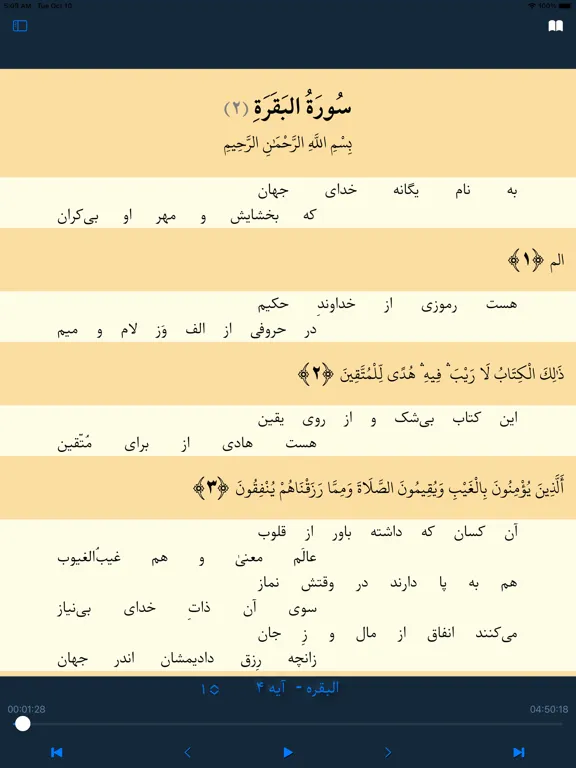 5:05 AM Tue Oct 10 100%
سُورَةُ البَقَرَةِ (۲)
بِسْمِ اللَّهِ الرَّحْمَٰنِ الرَّحِيمِ
به نام یگانه خدای جهان
که بخشایش و مهر او بی‌کران
الم ﴿۱﴾
هست رموزی از خداوندِ حکیم
در حروفی از الف وَز لام و میم
ذَٰلِكَ الْكِتَابُ لَا رَيْبَ ۛ فِيهِ ۛ هُدًى لِّلْمُتَّقِينَ ﴿۲﴾
این کتاب بی‌شک و از روی یقین
هست هادی از برای مُتّقین
أَلَّذِينَ يُؤْمِنُونَ بِالْغَيْبِ وَيُقِيمُونَ الصَّلَاةَ وَمِمَّا رَزَقْنَاهُمْ يُنْفِقُونَ ﴿۳﴾
آن کسان که داشته باور از قلوب
عالَم معنیٰ و هم غیبُ‌الغیوب
هم به پا دارند در وقتش نماز
سوی آن ذاتِ خدای بی‌نیاز
می‌کنند انفاق از مال و زِ جان
زانچه رِزق دادیمشان اندر جهان
البقره - آیه ۴
۱
00:01:28
04:50:18